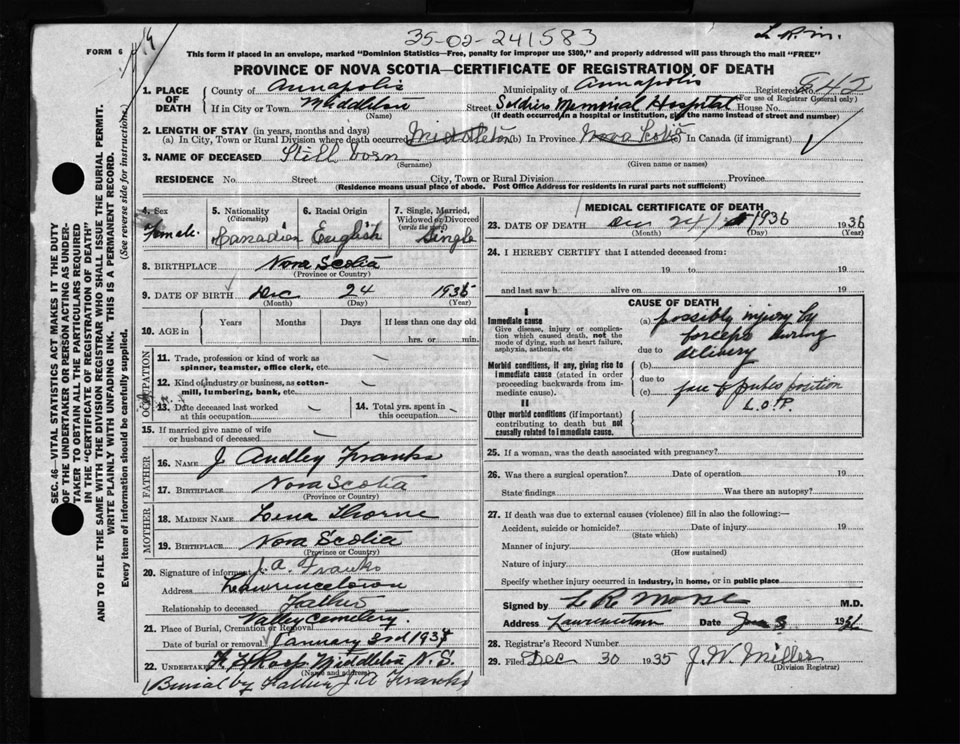 35-02-241583
L R M.
FORM 6
This form if placed in an envelope, marked "Dominion Statistics—Free, penalty for improper use $300," and properly addressed will pass through the mail "FREE"
PROVINCE OF NOVA SCOTIA—CERTIFICATE OF REGISTRATION OF DEATH
1. PLACE OF DEATH
County of Annapolis
Municipality of Annapolis
Registered No. 642
(For use of Registrar General only)
If in City or Town Middleton
(Name)
Street Soldiers Memorial Hospital House No.
(If death occurred in a hospital or institution, give the name instead of street and number)
2. LENGTH OF STAY (in years, months and days)
(a) In City, Town or Rural Division where death occurred Middleton (b) In Province Nova Scotia (c) In Canada (if immigrant)
3. NAME OF DECEASED Still born
(Surname) (Given name or names)
RESIDENCE No. Street City, Town or Rural Division Province
(Residence means usual place of abode. Post Office Address for residents in rural parts not sufficient)
SEC. 46—VITAL STATISTICS ACT MAKES IT THE DUTY
OF THE UNDERTAKER OR PERSON ACTING AS UNDER-
TAKER TO OBTAIN ALL THE PARTICULARS REQUIRED
IN THE "CERTIFICATE OF REGISTRATION OF DEATH"
AND TO FILE THE SAME WITH THE DIVISION REGISTRAR WHO SHALL ISSUE THE BURIAL PERMIT.
WRITE PLAINLY WITH UNFADING INK. THIS IS A PERMANENT RECORD.
Every item of information should be carefully supplied. (See reverse side for instructions.)
4. Sex
Female
5. Nationality
(Citizenship)
Canadian
6. Racial Origin
English
7. Single, Married,
Widowed or Divorced
(write the word)
Single
8. BIRTHPLACE Nova Scotia
(Province or Country)
9. DATE OF BIRTH Dec 24 1935
(Month) (Day) (Year)
10. AGE in
Years Months Days If less than one day old
hrs. or min.
OCCUPATION
11. Trade, profession or kind of work as
spinner, teamster, office clerk, etc.
12. Kind of industry or business, as cotton-
mill, lumbering, bank, etc.
13. Date deceased last worked
at this occupation
14. Total yrs. spent in
this occupation
15. If married give name of wife
or husband of deceased
FATHER
16. NAME J Audley Franks
17. BIRTHPLACE Nova Scotia
(Province or Country)
MOTHER
18. MAIDEN NAME Lena Thorne
19. BIRTHPLACE Nova Scotia
(Province or Country)
20. Signature of informant J. A. Franks
Address Lawrencetown
Relationship to deceased Father
21. Place of Burial, Cremation or Removal Valley Cemetery
Date of burial or removal January 3rd 193
22. UNDERTAKER Middleton N. S.
(Name and address)
(Burial by Father J. A Franks)
MEDICAL CERTIFICATE OF DEATH
23. DATE OF DEATH Dec 24 1936 1936
(Month) (Day) (Year)
24. I HEREBY CERTIFY that I attended deceased from:
19 to 19
and last saw h alive on 19
CAUSE OF DEATH
I
Immediate cause
Give disease, injury or complica-
tion which caused death, not the
mode of dying, such as heart failure,
asphyxia, asthenia, etc
(a) possibly injury by
forceps during
due to delivery
Morbid conditions, if any, giving rise to
immediate cause (stated in order
proceeding backwards from im-
mediate cause).
(b)
due to
(c) face to pubes position
L.O.P.
II
Other morbid conditions (if important)
contributing to death but not
causally related to immediate cause.
25. If a woman, was the death associated with pregnancy?
26. Was there a surgical operation? Date of operation 19
State findings Was there an autopsy?
27. If death was due to external causes (violence) fill in also the following:—
Accident, suicide or homicide? Date of injury 19
(State which)
Manner of injury
(How sustained)
Nature of injury
Specify whether injury occurred in industry, in home, or in public place
Signed by L R Morse M.D.
Address Lawrencetown Date Jan 3 19
28. Registrar's Record Number
29. Filed Dec 30 1935 J. W. Miller
(Division Registrar)